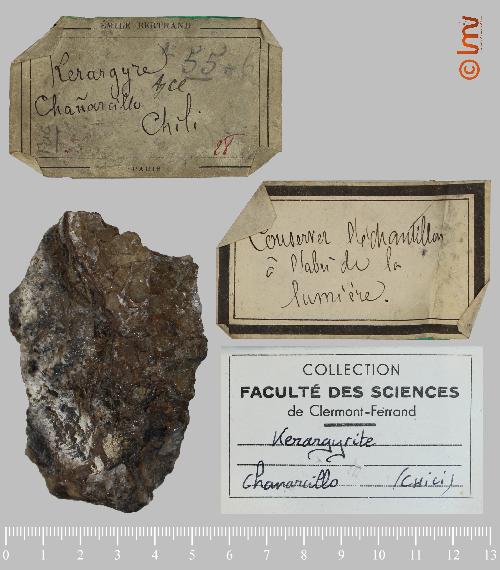 ÉMILE BERTRAND
Kerargyre 55
Agcl
Chañarcillo
Chili
28
PARIS
© lmv
Conserver l'échantillon
à l'abri de la
lumière.
COLLECTION
FACULTÉ DES SCIENCES
de Clermont-Ferrand
Kerargyrite
Chanarcillo (CHILI)
0 1 2 3 4 5 6 7 8 9 10 11 12 13